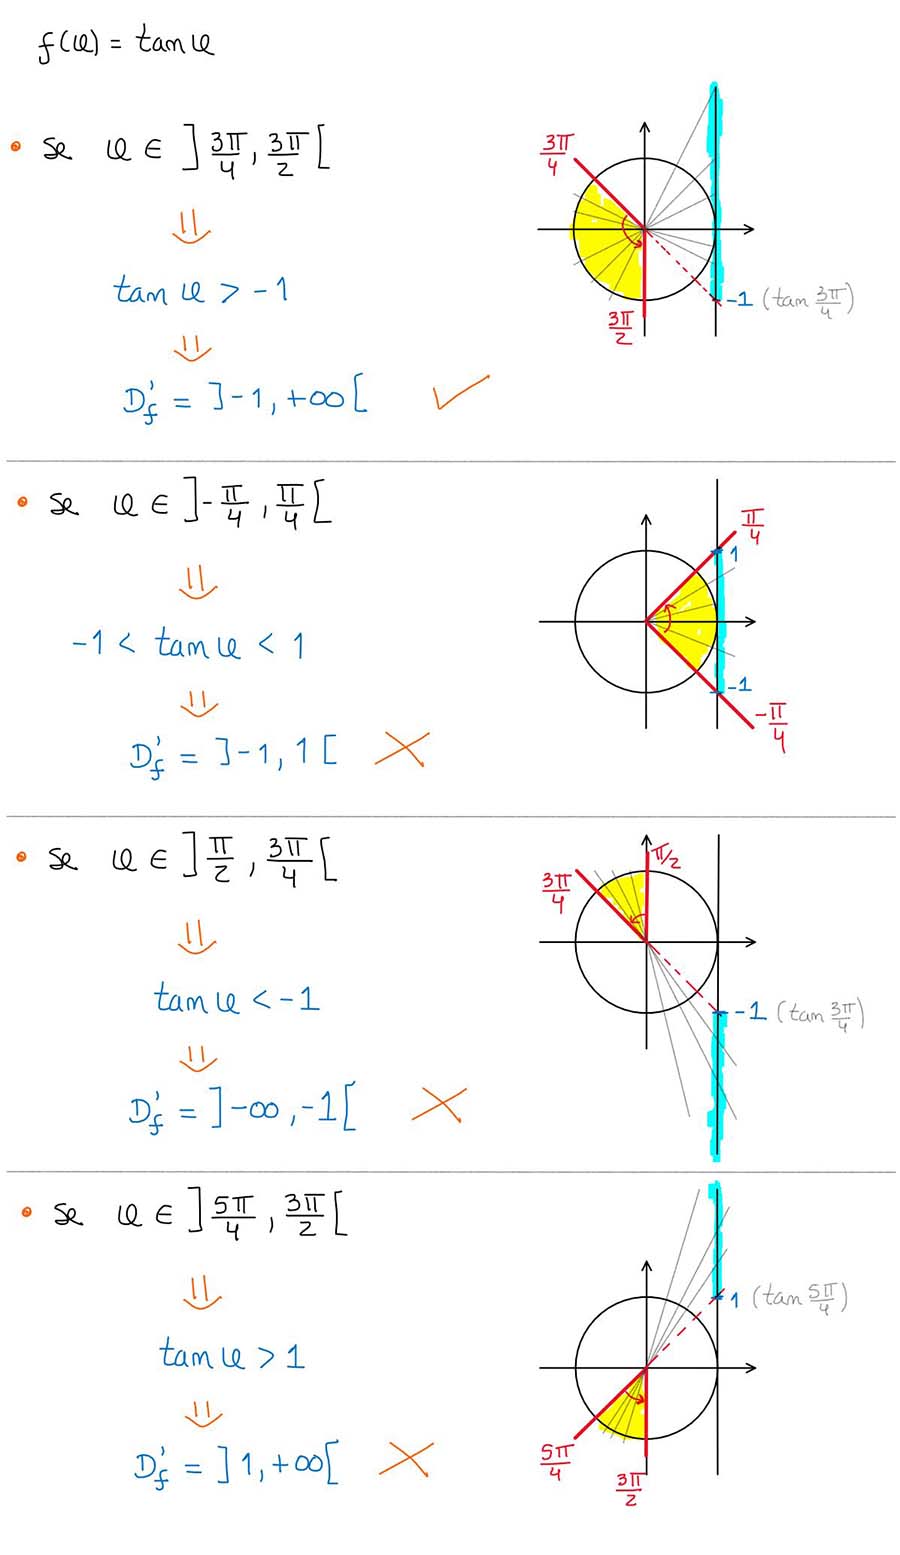 f(x) = tan x
• se x ∈ ]3π/4, 3π/2[
⇓
tan x > -1
⇓
D'f = ]-1, +∞[ ✓
3π/4
3π/2
-1 (tan 3π/4)
• se x ∈ ]-π/4, π/4[
⇓
-1 < tan x < 1
⇓
D'f = ]-1, 1[ ✗
π/4
1
-1
-π/4
• se x ∈ ]π/2, 3π/4[
⇓
tan x < -1
⇓
D'f = ]-∞, -1[ ✗
π/2
3π/4
-1 (tan 3π/4)
• se x ∈ ]5π/4, 3π/2[
⇓
tan x > 1
⇓
D'f = ]1, +∞[ ✗
1 (tan 5π/4)
5π/4
3π/2